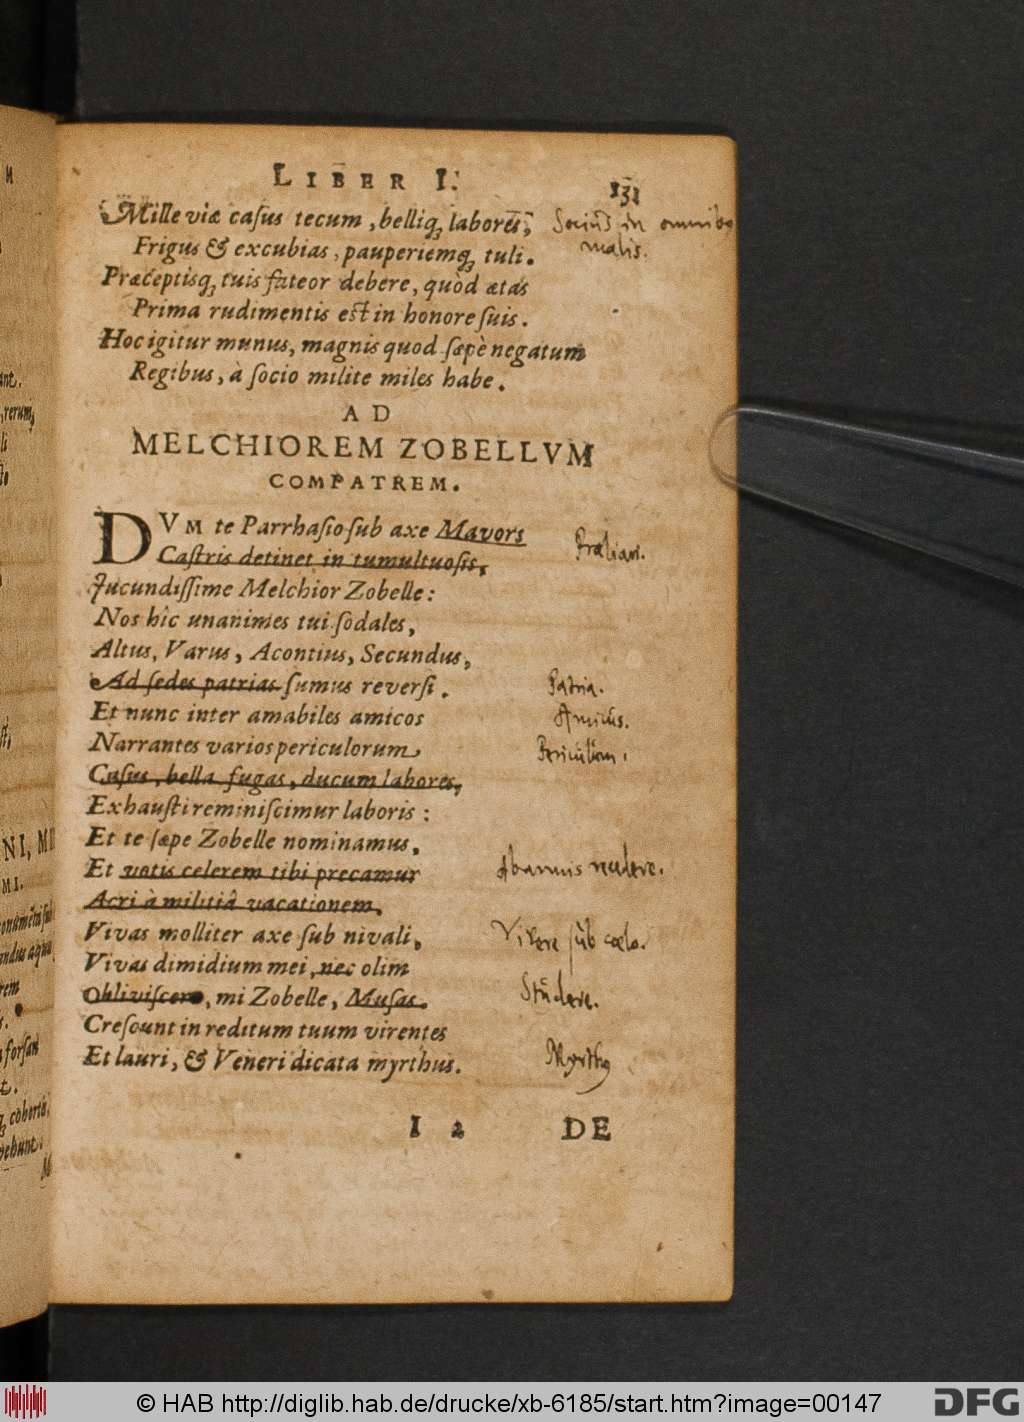 LIBER I. 131
Mille viæ casus tecum, belliq; labores,
Socius in omnibus
Frigus & excubias, pauperiemq; tuli.
malis.
Præceptisq; tuis fateor debere, quod ætas
Prima rudimentis est in honore suis.
Hoc igitur munus, magnis quod sæpè negatum
Regibus, à socio milite miles habe.
AD
MELCHIOREM ZOBELLVM
COMPATREM.
DVM te Parrhasio sub axe Mavors
Præliari.
Castris detinet in tumultuosis,
Jucundissime Melchior Zobelle:
Nos hîc unanimes tui sodales,
Altus, Varus, Acontius, Secundus,
Ad sedes patrias sumus reversi.
Patria.
Et nunc inter amabiles amicos
Amicus.
Narrantes varios periculorum
Periculum.
Casus, bella fugas, ducum labores,
Exhausti reminiscimur laboris:
Et te sæpe Zobelle nominamus,
Et votis celerem tibi precamur
Acri à militiâ vacationem.
Vivas molliter axe sub nivali,
Vivere sub cœlo.
Vivas dimidium mei, nec olim
Obliviscere, mi Zobelle, Musas.
Studere.
Crescunt in reditum tuum virentes
Et lauri, & Veneri dicata myrthus.
Myrthus
I 2 DE
ant.
, rerum
NI, MI
MI.
rem
forsan
t.
cohortes.
vehunt.
© HAB http://diglib.hab.de/drucke/xb-6185/start.htm?image=00147
DFG